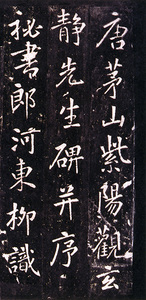 唐茅山紫陽觀玄
静先生碑并序
祕書郎河東柳識